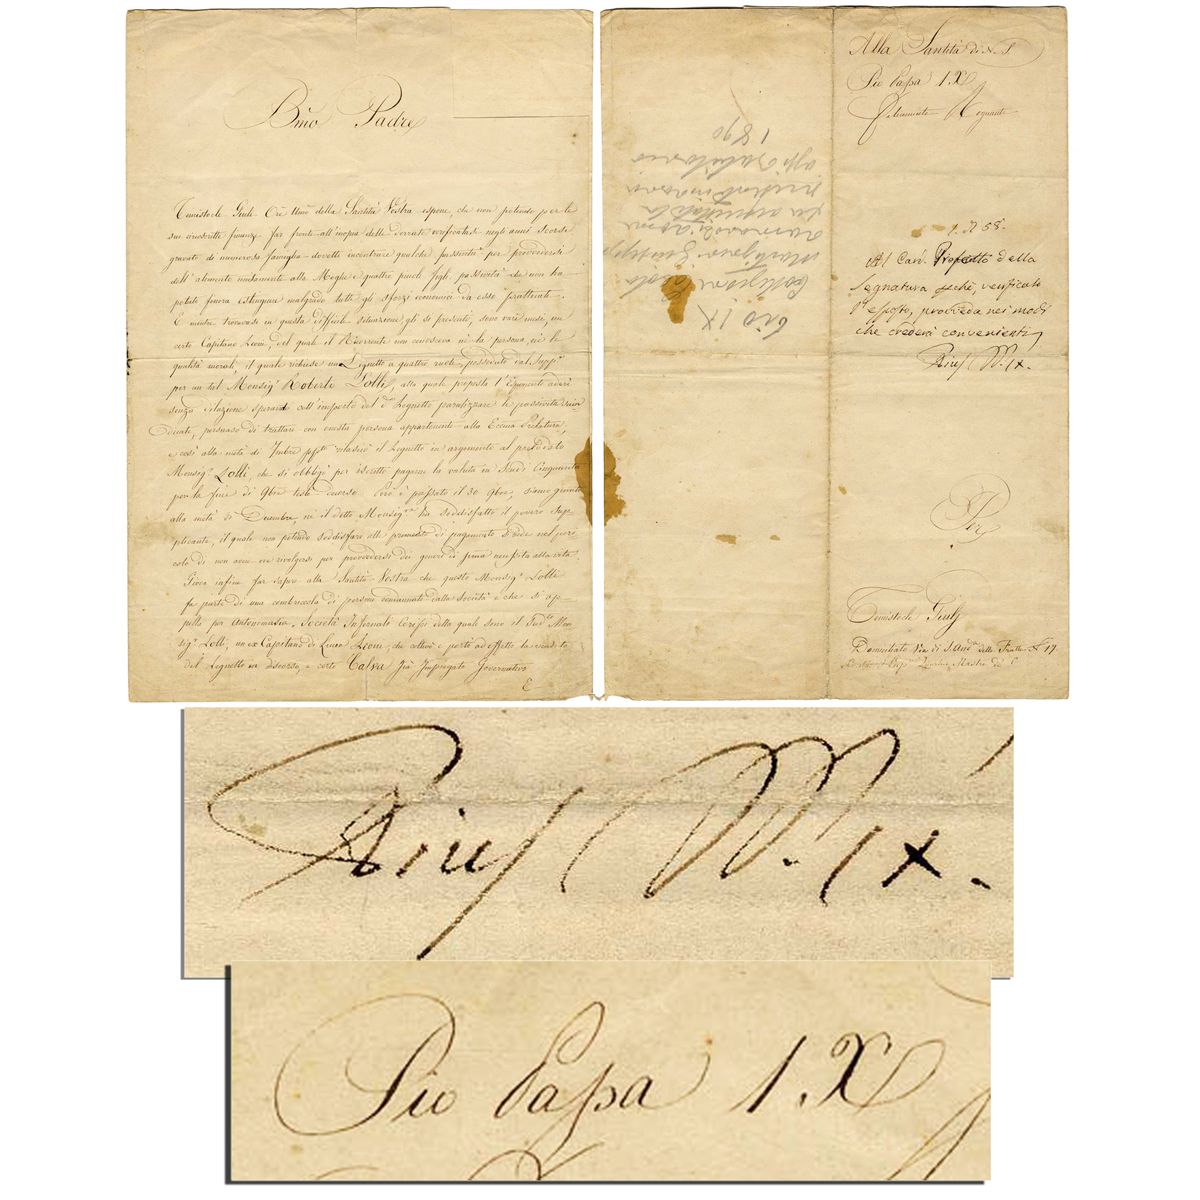 Bmo Padre
Temistocle Giulj Ore Umo della Santità Vostra espone, che non potendo per le
sue circoscritte finanze far fronte all'inopia delle derrate verificatasi negli anni scorsi
gravato di numerosa famiglia dovette incontrare qualche passività per provvedersi
dell'alimento unitamente alla Moglie e quattro piccoli figlj, passività che non ha
potuto finora estinguere malgrado tutti gli sforzi economici da esso pratticati.
E mentre trovavasi in questa difficile situazione gli si presentò, sono varj mesi, un
certo Capitano Leoni, del quale il Ricorrente non conosceva nè la persona, nè le
qualità morali, il quale richiese un Legnetto a quattro ruote, posseduto dal Suppe
per un tal Monsigr Roberto Lolli, alla quale proposta l'Esponente aderì
senza esitazione sperando coll'importo del do Legnetto paralizzare le passività sud
dicate, persuaso di trattare con onesta persona appartenente alla Eccma Prelatura,
e così alla metà di 7mbre ppto rilasciò il Legnetto in argomento al prelodato
Monsigr Lolli, che si obbligò per iscritto pagarne la valuta in Scudi Cinquanta
per la fine di 9bre testè decorso. Però è passato il 30 9bre, siamo giunti
alla metà di Decembre, nè il detto Monsigre ha soddisfatto il povero Sup=
plicante, il quale non potendo soddisfare alle promesse di pagamento si vede nel peri
colo di non aver ove rivolgersi per provvedersi dei generi di prima necessità alla vita.
Giova infine far sapere alla Santità Vostra che questo Monsigr Lolli
fa parte di una combriccola di persone condannate dalla Società e che si ap=
pella per Antonomasia, Società Infernale Corifei della quale sono il sudo Mon
sigr Lolli, un ex Capitano di Linea Leoni, che coltivò e portò ad effetto la richiesta
del Legnetto in discorso, e certo Calva Già Impiegato Governativo
E
Alla Santità di N. S.
Pio Papa I.X
Felicemente Regnante
55.
Al Can. Prefetto della
Segnatura perchè, verificato
l'esposto, provveda nei modi
che crederà convenienti
Pius PP. IX.
Per
Temistocle Giulj
Domiciliato Via di S. Andra delle Fratte N. 17
Pio IX
1890
Pius PP. IX.
Pio Papa I.X